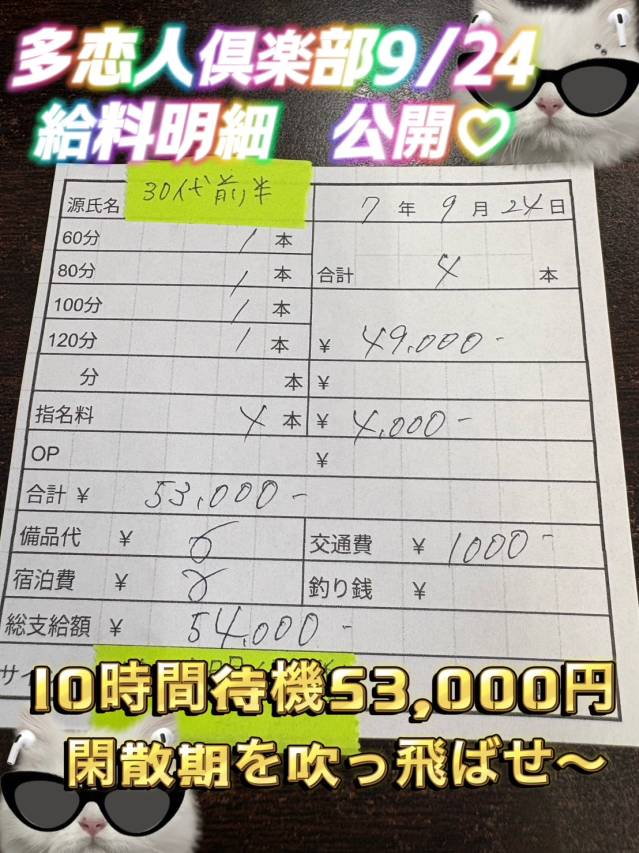 多恋人倶楽部9/24
給料明細 公開♡
源氏名 30代前半 7年9月24日
60分 1本
80分 1本 合計 4本
100分 1本
120分 1本 ¥ 49,000-
分 本 ¥
指名料 4本 ¥ 4,000-
OP ¥
合計 ¥ 53,000-
備品代 ¥ 交通費 ¥ 1000-
宿泊費 ¥ 釣り銭 ¥
総支給額 ¥ 54,000-
サイ
10時間待機53,000円
閑散期を吹っ飛ばせ〜